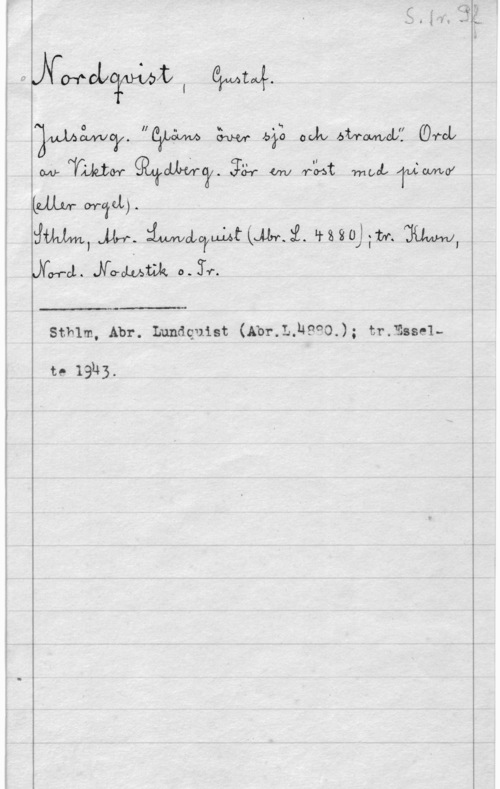 S. fr. 9
Nordqvist, Gustaf.
Julsång. "Gläns över sjö och strand". Ord
av Viktor Rydberg. För en röst med piano
(eller orgel).
Sthlm, Abr. Lundquist (Abr. L. 4880); tr. Khvn,
Nord. Nodestik o. Tr.
Sthlm, Abr. Lundquist (Abr.L.4880.); tr.Essel-
te 1943.